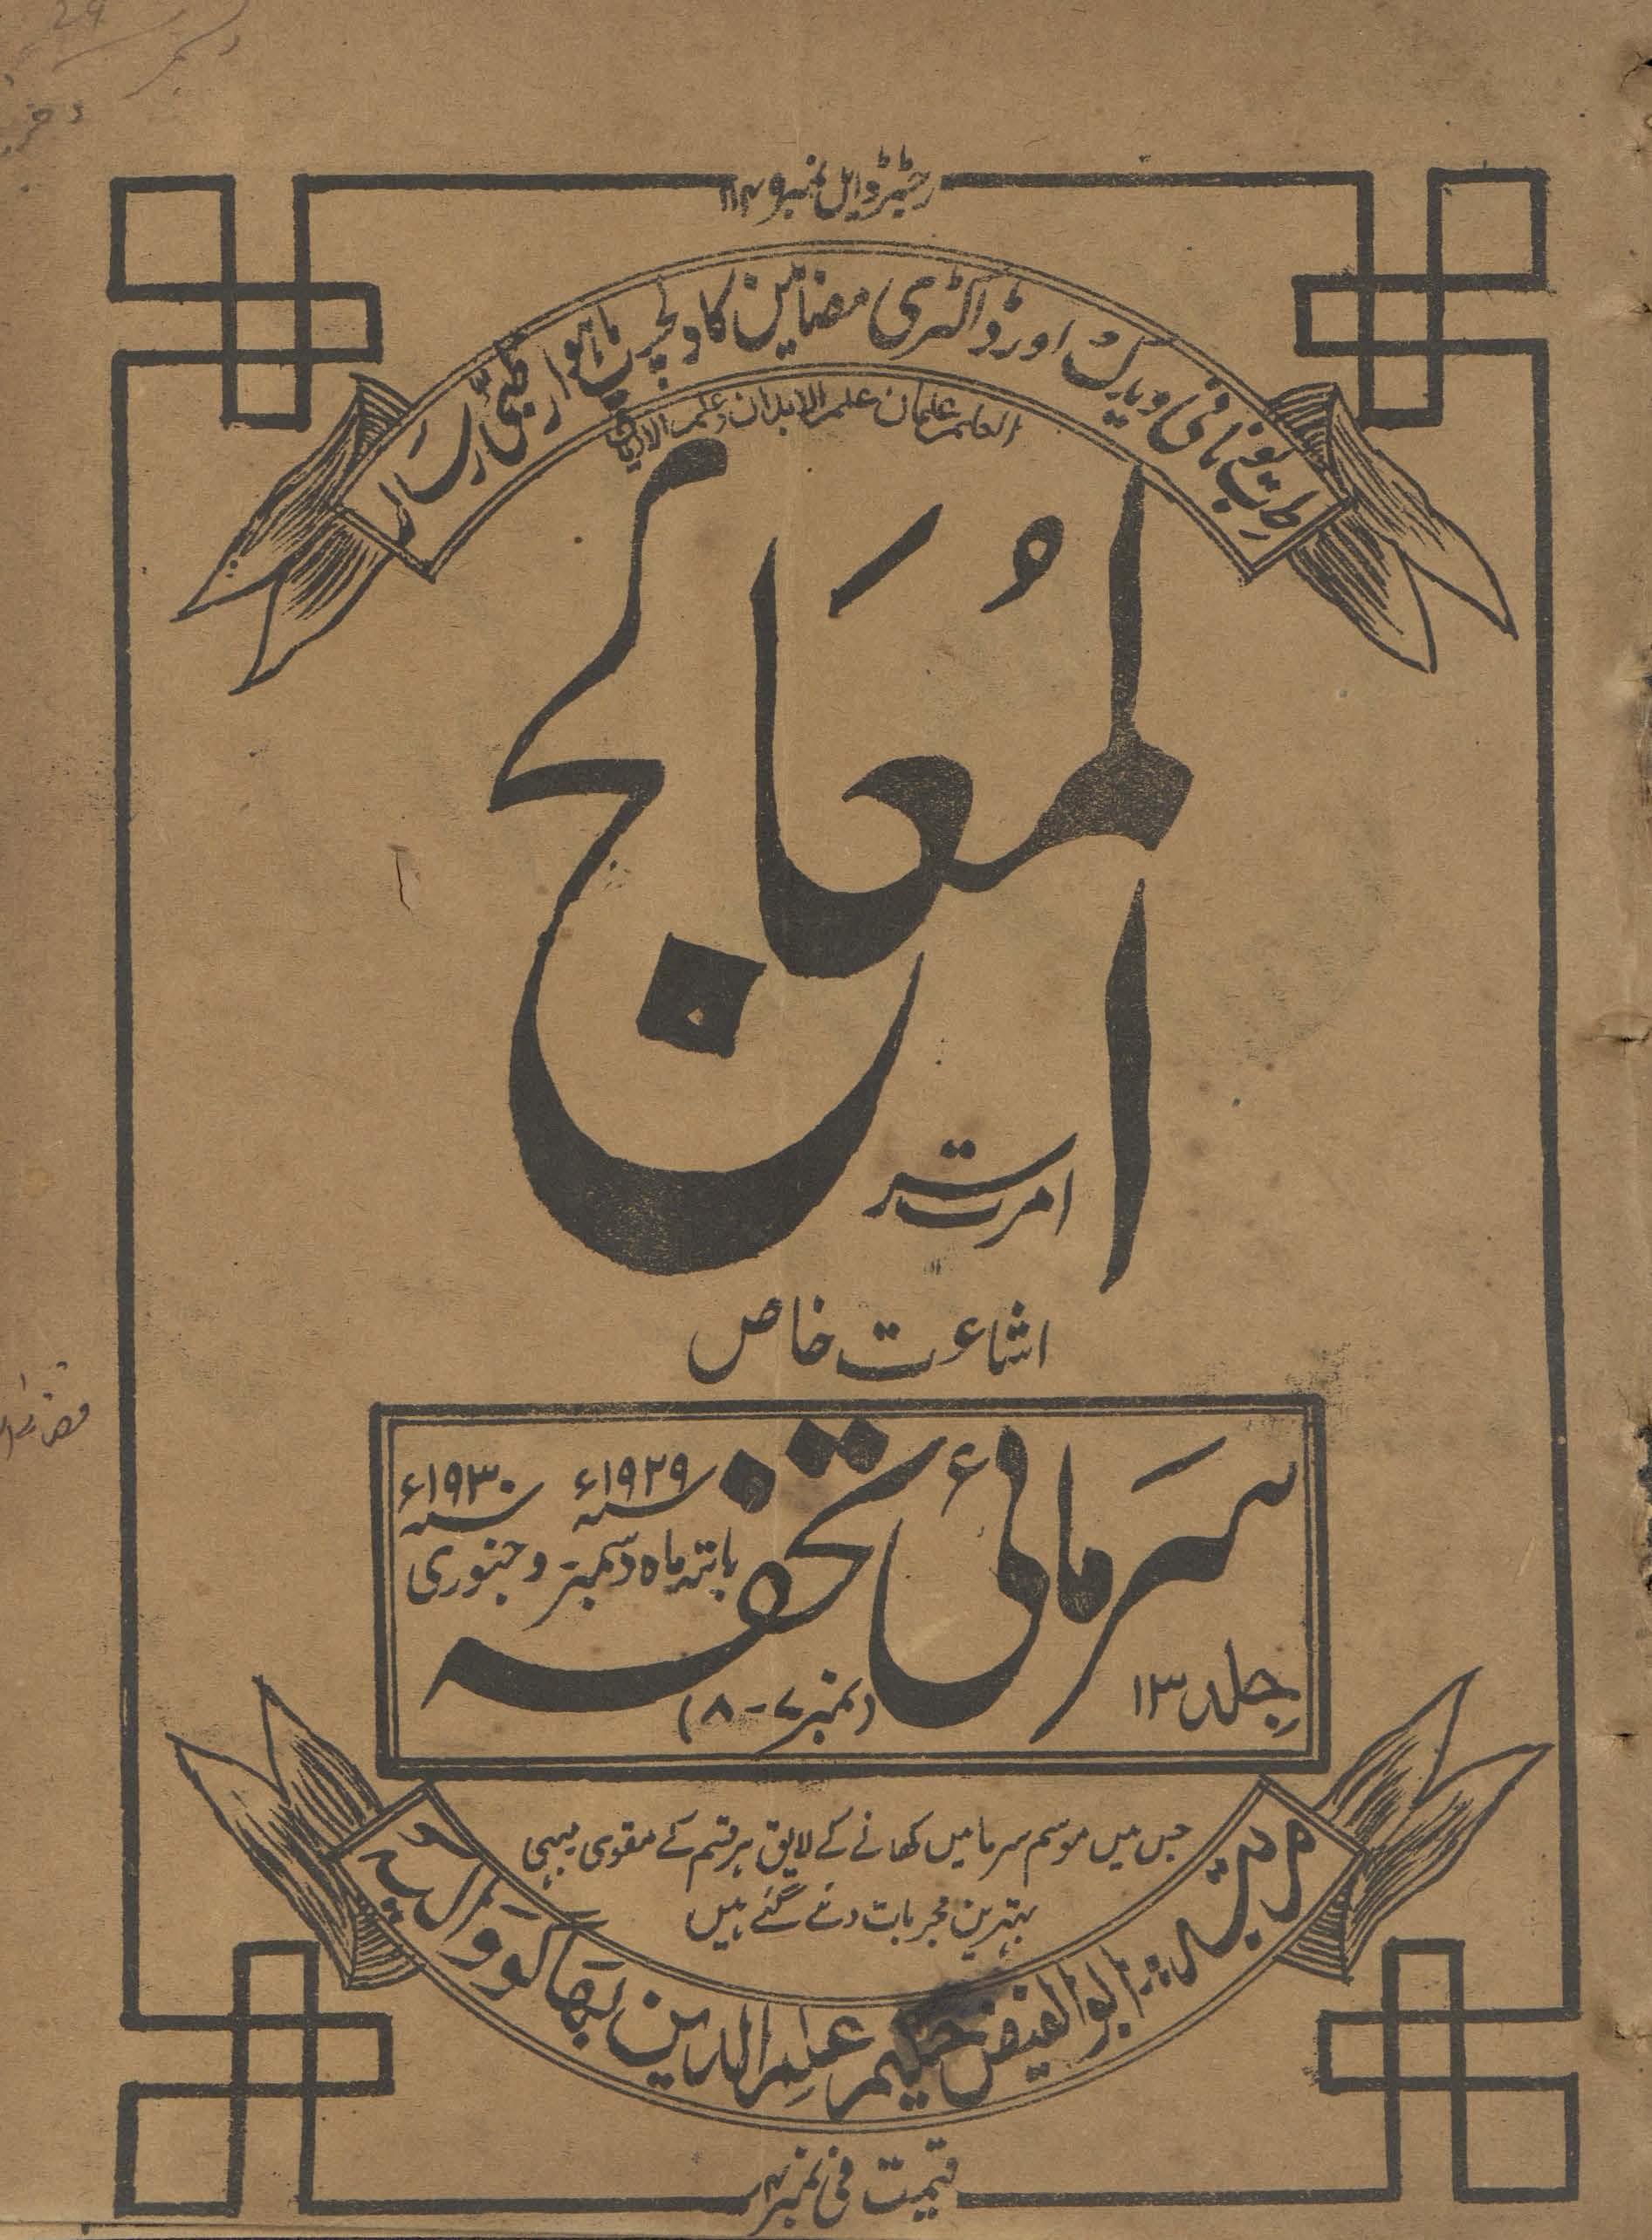 رجسٹرڈ ایل نمبر ۱۱۴۹
طب یونانی ویدک اور ڈاکٹری مضامین کا دلچسپ ماہوار طبی رسالہ
العلم علمان علم الابدان وعلم الادیان
المُعَالج
امرتسر
اشاعت خاص
سرمائی تحفہ
سنہ ۱۹۲۹ء سنہ ۱۹۳۰ء
بابتہ ماہ دسمبر و جنوری
جلد ۱۳
(نمبر ۷-۸)
جس میں موسم سرما میں کھانے کے لایق ہر قسم کے مقوی مبہی
بہترین مجربات دئے گئے ہیں
مرتبہ: ابو الفیض حکیم علم الدین بھاگووالیہ
قیمت فی نمبر